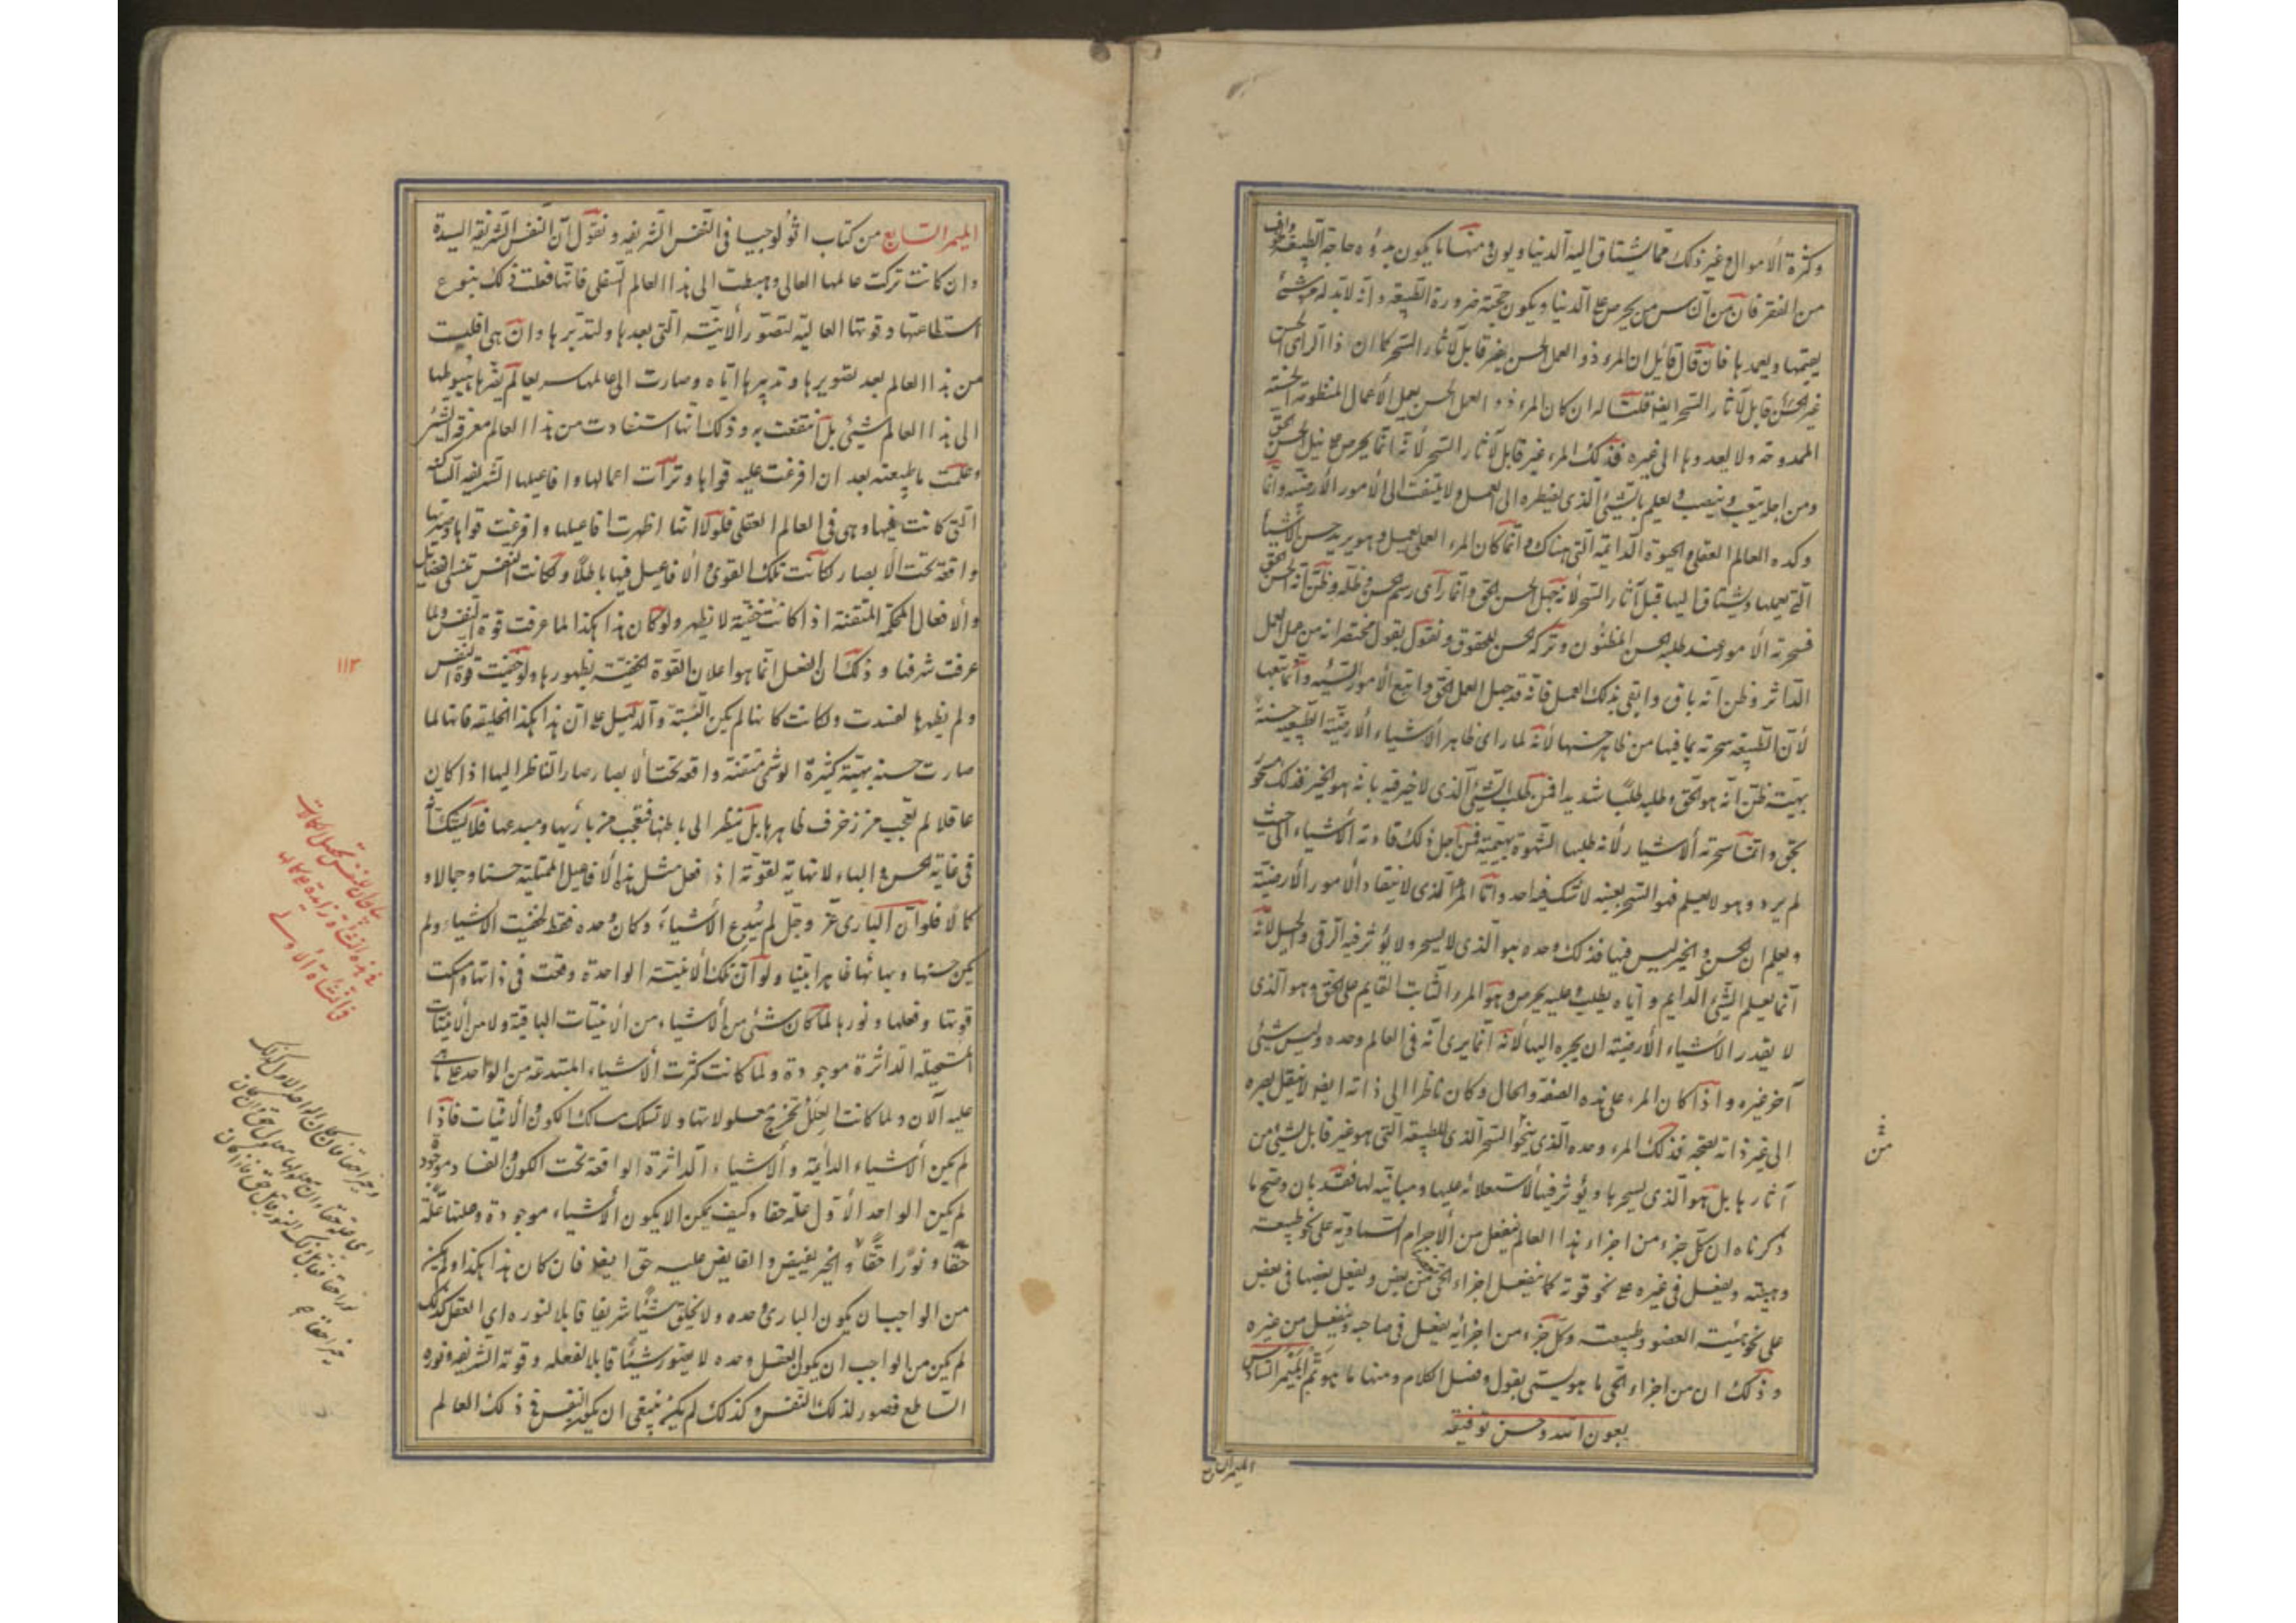 وكثرة الأموال وغير ذلك مما يشتاق اليه الدنيا ويون ومنها ما يكون بدؤه حاجة الطبيعة وخوف
من الفقر فان من الناس من يحرص على الدنيا ويكون حجته ضرورة الطبيعة وانه لا بد له من شئ
يقيمها ويعمد بها فان قال قائل ان المرء ذو العمل الحسن غير قابل لآثار السحر كما ان ذا الرأى الحسن
غير قابل لآثار السحر ايضا قلنا له ان كان المرء ذو العمل الحسن يعمل الأعمال المنظومة الحسنة
الممدوحة ولا يعدوها الى غيره فذلك المرء غير قابل لآثار السحر لأنه انما يحرص على نيل الحسن الحق
ومن اجله يتعب وينصب ويعلم بالشئ الذى يضطره الى العمل ولا يلتفت الى الأمور الأرضية وانما
وكده العالم العقلى والحيوة الدائمة التى هناك وانما كان المرء العملى يعمل وهو يريد حسن الأشياء
التى يعملها ويشتاق اليها قبل آثار السحر لأنه جهل الحسن الحق وانما رآى رسم الحسن وظله وظن انه الحسن الحق
فسحرته الأمور عند طلبه الحسن المظنون وتركه الحسن الحقوق ونقول بقول مختصر انه من عمل العمل
الداثر وظن انه باق وابقى بذلك العمل فانه قد جهل العمل الحق واتبع الأمور السيئه وانما يتبعها
لأن الطبيعة سحرته بما فيها من ظاهر حسنها لأنه لما راى ظاهر الأشياء الأرضية الطبيعية حسنة
بهيّة ظن انه هو الحق وطلبه طلبا شديدا فمن طلب الشئ الذى لا خير فيه بانه هو الخير فذلك مسحور
بحق وانما سحرته الأشياء لأنه طلبها بالشهوة بهيميّة فمن اجل ذلك قادته الأشياء الى حيث
لم يرد وهو لا يعلم فهو السحر بعينه لا شك فيه احد وانما المرء الذى لا ينقاد الأمور الأرضية
ويعلم ان الحسن والخير ليس فيها فذلك وحده هو الذى لا يسحر ولا يؤثر فيه الرقى والحيل لأنه
انما يعلم الشئ الدايم واياه يطلب وعليه يحرص وهو المرء الثابت القايم على الحق وهو الذى
لا يقدر الأشياء الأرضية ان يجره اليها لأنه انما يرى انه فى العالم وحده وليس شئ
آخر غيره واذا كان المرء على هذه الصفة والحال وكان ناظرا الى ذاته ايضا لا ينقل بصره
الى غير ذاته بصحّة فذلك المرء وحده الذى ينجو السحر الذى للطبيعة التى هو غير قابل لشئ من
آثارها بل هو الذى يسحرها ويؤثر فيها لاستعلائه عليها ومباينته لها فقد بان وصح ما
ذكرناه ان كل جزء من اجزاء هذا العالم ينفعل من الأجرام السماوية على نحو طبيعته
وهيئته ويفعل فى غيره على نحو قوته كما ينفعل اجزاء الحى من بعض ويفعل بعضها فى بعض
على نحو هيئة العضو وطبيعته وكل جزء من اجزائه يفعل فى صاحبه وينفعل من غيره
وذلك ان من اجزاء الحى ما هو يستمى بقول وفصل الكلام ومنها ما هو تم الميمر السادس
بعون الله وحسن توفيقه
الميمر السابع
من
الميمر السابع من كتاب اثولوجيا فى النفس الشريفه ونقول ان النفس الشريفة السيدة
وان كانت تركت عالمها العالى وهبطت الى هذا العالم السفلى فانها فعلت ذلك بنوع
استطاعتها وقوتها العالية لتصوّر الأنيّة التى بعدها ولتدبّرها وان هى افلتت
من هذا العالم بعد تصويرها وتدبيرها اياه وصارت الى عالمها سريعا لم يضرّها هبوطها
الى هذا العالم شيئا بل انتفعت به وذلك انها استفادت من هذا العالم معرفة الشر
وعلمت ما طبيعته بعد ان افرغت عليه قواها وترآت اعمالها وافاعيلها الشريفه الساكنه
التى كانت فيها وهى فى العالم العقلى فلولا انها اظهرت افاعيلها وافرغت قواها وصيرتها
واقعة تحت الأبصار لكانت تلك القوى والأفاعيل فيها باطلا ولكانت النفس تنسى الفضايل
والأفعال المحكمة المتقنة اذا كانت خفيّة لا تظهر ولو كان هذا هكذا لما عرفت قوة النفس ولما
عرفت شرفها وذلك ان الفعل انما هو اعلان القوة الخفيّة بظهورها ولو خفيت قوة النفس
ولم يظهرها لفسدت ولكانت كانها لم يكن البتة والدليل على ان هذا هكذا الخليقة فانها لما
صارت حسنه بهيّة كثيرة الوشى متقنة واقعة تحت الأبصار صار الناظر اليها اذا كان
عاقلا لم يعجب من زخرف ظاهرها بل ينظر الى باطنها فتعجب من باريها ومبدعها فلا يشك انه
فى غاية الحسن والبهاء لا نهاية لقوته اذ فعل مثل هذه الأفاعيل الممتلئة حسنا وجمالا و
كمالا فلو ان البارى عز وجل لم يبدع الأشياء وكان وحده فقط لخفيت الأشياء ولم
يكن حسنها وبهائها ظاهرا بيّنا ولو ان تلك الأنيّة الواحدة وقفت فى ذاتها وامسكت
قوتها وفعلها ونورها لما كان شئ من الأشياء من الأنيّات الباقية ولا من الأنيّات
المستحيلة الداثرة موجودة ولما كانت كثرت الأشياء المبتدعة من الواحد على ما هى
عليه الآن ولما كانت العلل تخرج معلولاتها ولا تسلك مسالك الكون والأنيّات فاذا
لم يكن الأشياء الدائمة والأشياء الداثرة الواقعة تحت الكون والفساد موجودة
لم يكن الواحد الأول علة حقا وكيف يمكن الا يكون الأشياء موجودة وعلتها علة
حقا ونورا حقا والخير يفيض والفايض عليه حق ايضا فان كان هذا هكذا ولم يكن
من الواجب ان يكون البارى وحده ولا يخلق شيئا شريفا قابلا لنوره اى العقل كذلك
لم يكن من الواجب ان يكون العقل وحده لا يصور شيئا قابلا لفعله وقوته الشريفة ونوره
الساطع فصور لذلك النفس وكذلك لم يكن ينبغى ان يكون النفس فى ذلك العالم
١١٣